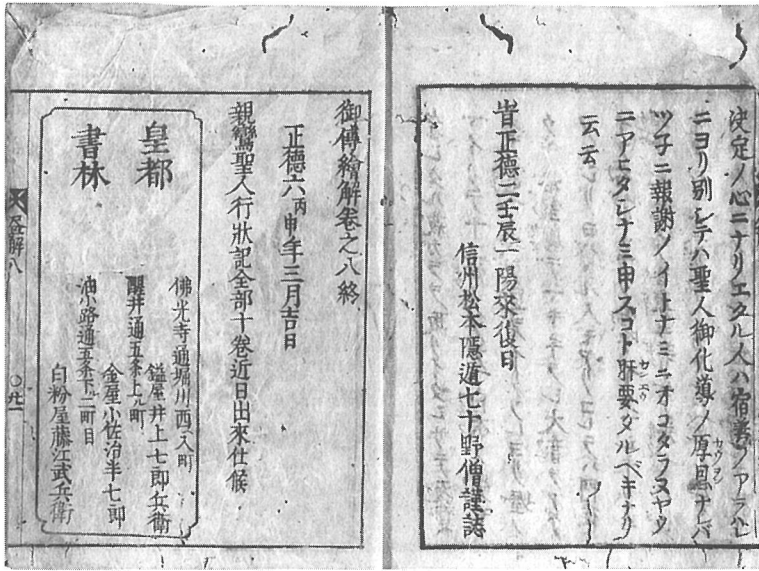 決定ノ心ニナリエタル人ハ宿善ノアラハレ
ニヨリ別シテハ聖人御化導ノ厚恩ナレバ
ツ子ニ報謝ノイトナミニオコタラヌヤウ
ニアヒタシナミ申スコト肝要タルベキナリ
云云
旹正徳二壬辰一陽來復日
信州松本隱遁七十野僧謹誌
御傳繪解卷之八終
正德六丙申年三月吉日
親鸞聖人行狀記全部十卷近日出來仕候
皇都
書林
佛光寺通堀川西ヘ入町
鎰屋井上七郎兵衛
醒井通五条上ル町
金屋小佐治半七郎
油小路通五条下ル二町目
白粉屋藤江武兵衛
繪解八
〇廿一